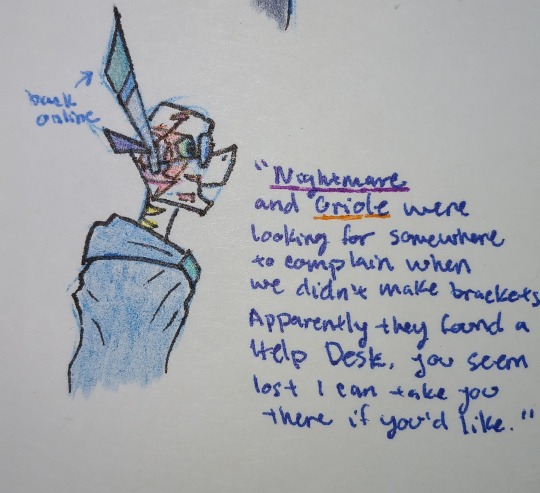 back
online
"Nightmare
and Oriole were
looking for somewhere
to complain when
we didn't make brackets
Apparently they found a
Help Desk, you seem
lost I can take you
there if you'd like."